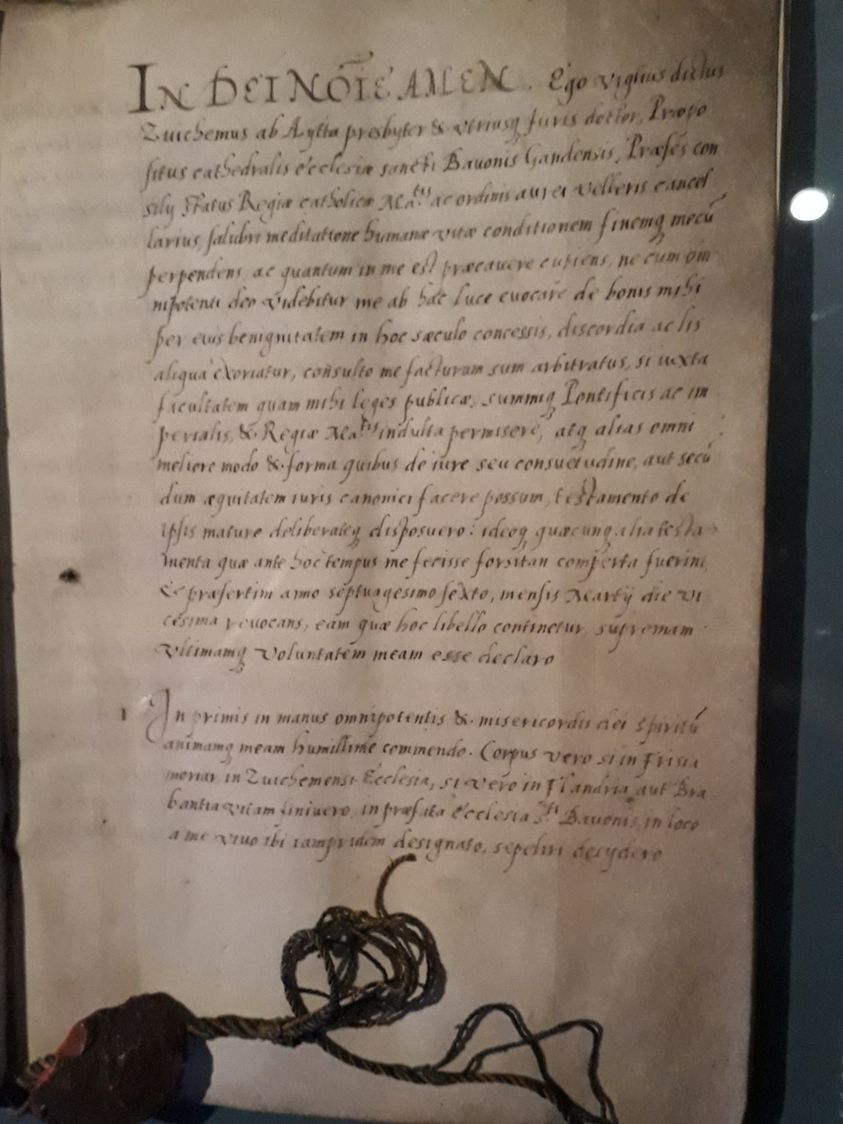 IN DEI NOĪE AMEN. Ego Viglius dictus
Zuichemus ab Aytta presbyter & vtriusq juris doctor, Præpo
situs cathedralis ecclesiæ sancti Bauonis Gandensis, Præses con
silij Status Regiæ catholicæ Ma.tis ac ordinis aurei velleris cancel
larius, salubri meditatione humanæ vitæ conditionem finemq mecū
perpendens, ac quantum in me est præcauere cupiens, ne cum om
nipotenti deo videbitur me ab hac luce euocare de bonis mihi
per eius benignitatem in hoc sæculo concessis, discordia ac lis
aliqua exoriatur, consulto me facturum sum arbitratus, si iuxta
facultatem quam mihi leges publicæ, summiq Pontificis ac im
perialis, & Regiæ Ma.tis indulta permisere, atq alias omni
meliore modo & forma quibus de iure seu consuetudine, aut secū
dum æquitatem iuris canonici facere possum, testamento de
ipsis mature deliberateq disposuero: ideoq quæcunq alia testa
menta quæ ante hoc tempus me fecisse forsitan comperta fuerint,
Et præsertim anno septuagesimo sexto, mensis Martij die vi
cesima reuocans, eam quæ hoc libello continetur, supremam
Vltimamq voluntatem meam esse declaro
1 In primis in manus omnipotentis & misericordis dei spiritū
animamq meam humillime commendo. Corpus vero si in Frisia
moriar, in Zuichemensi Ecclesia, si vero in Flandria aut Bra
bantia vitam finiuero, in præfata ecclesia S.ti Bauonis, in loco
a me viuo ibi iampridem designato, sepeliri desydero